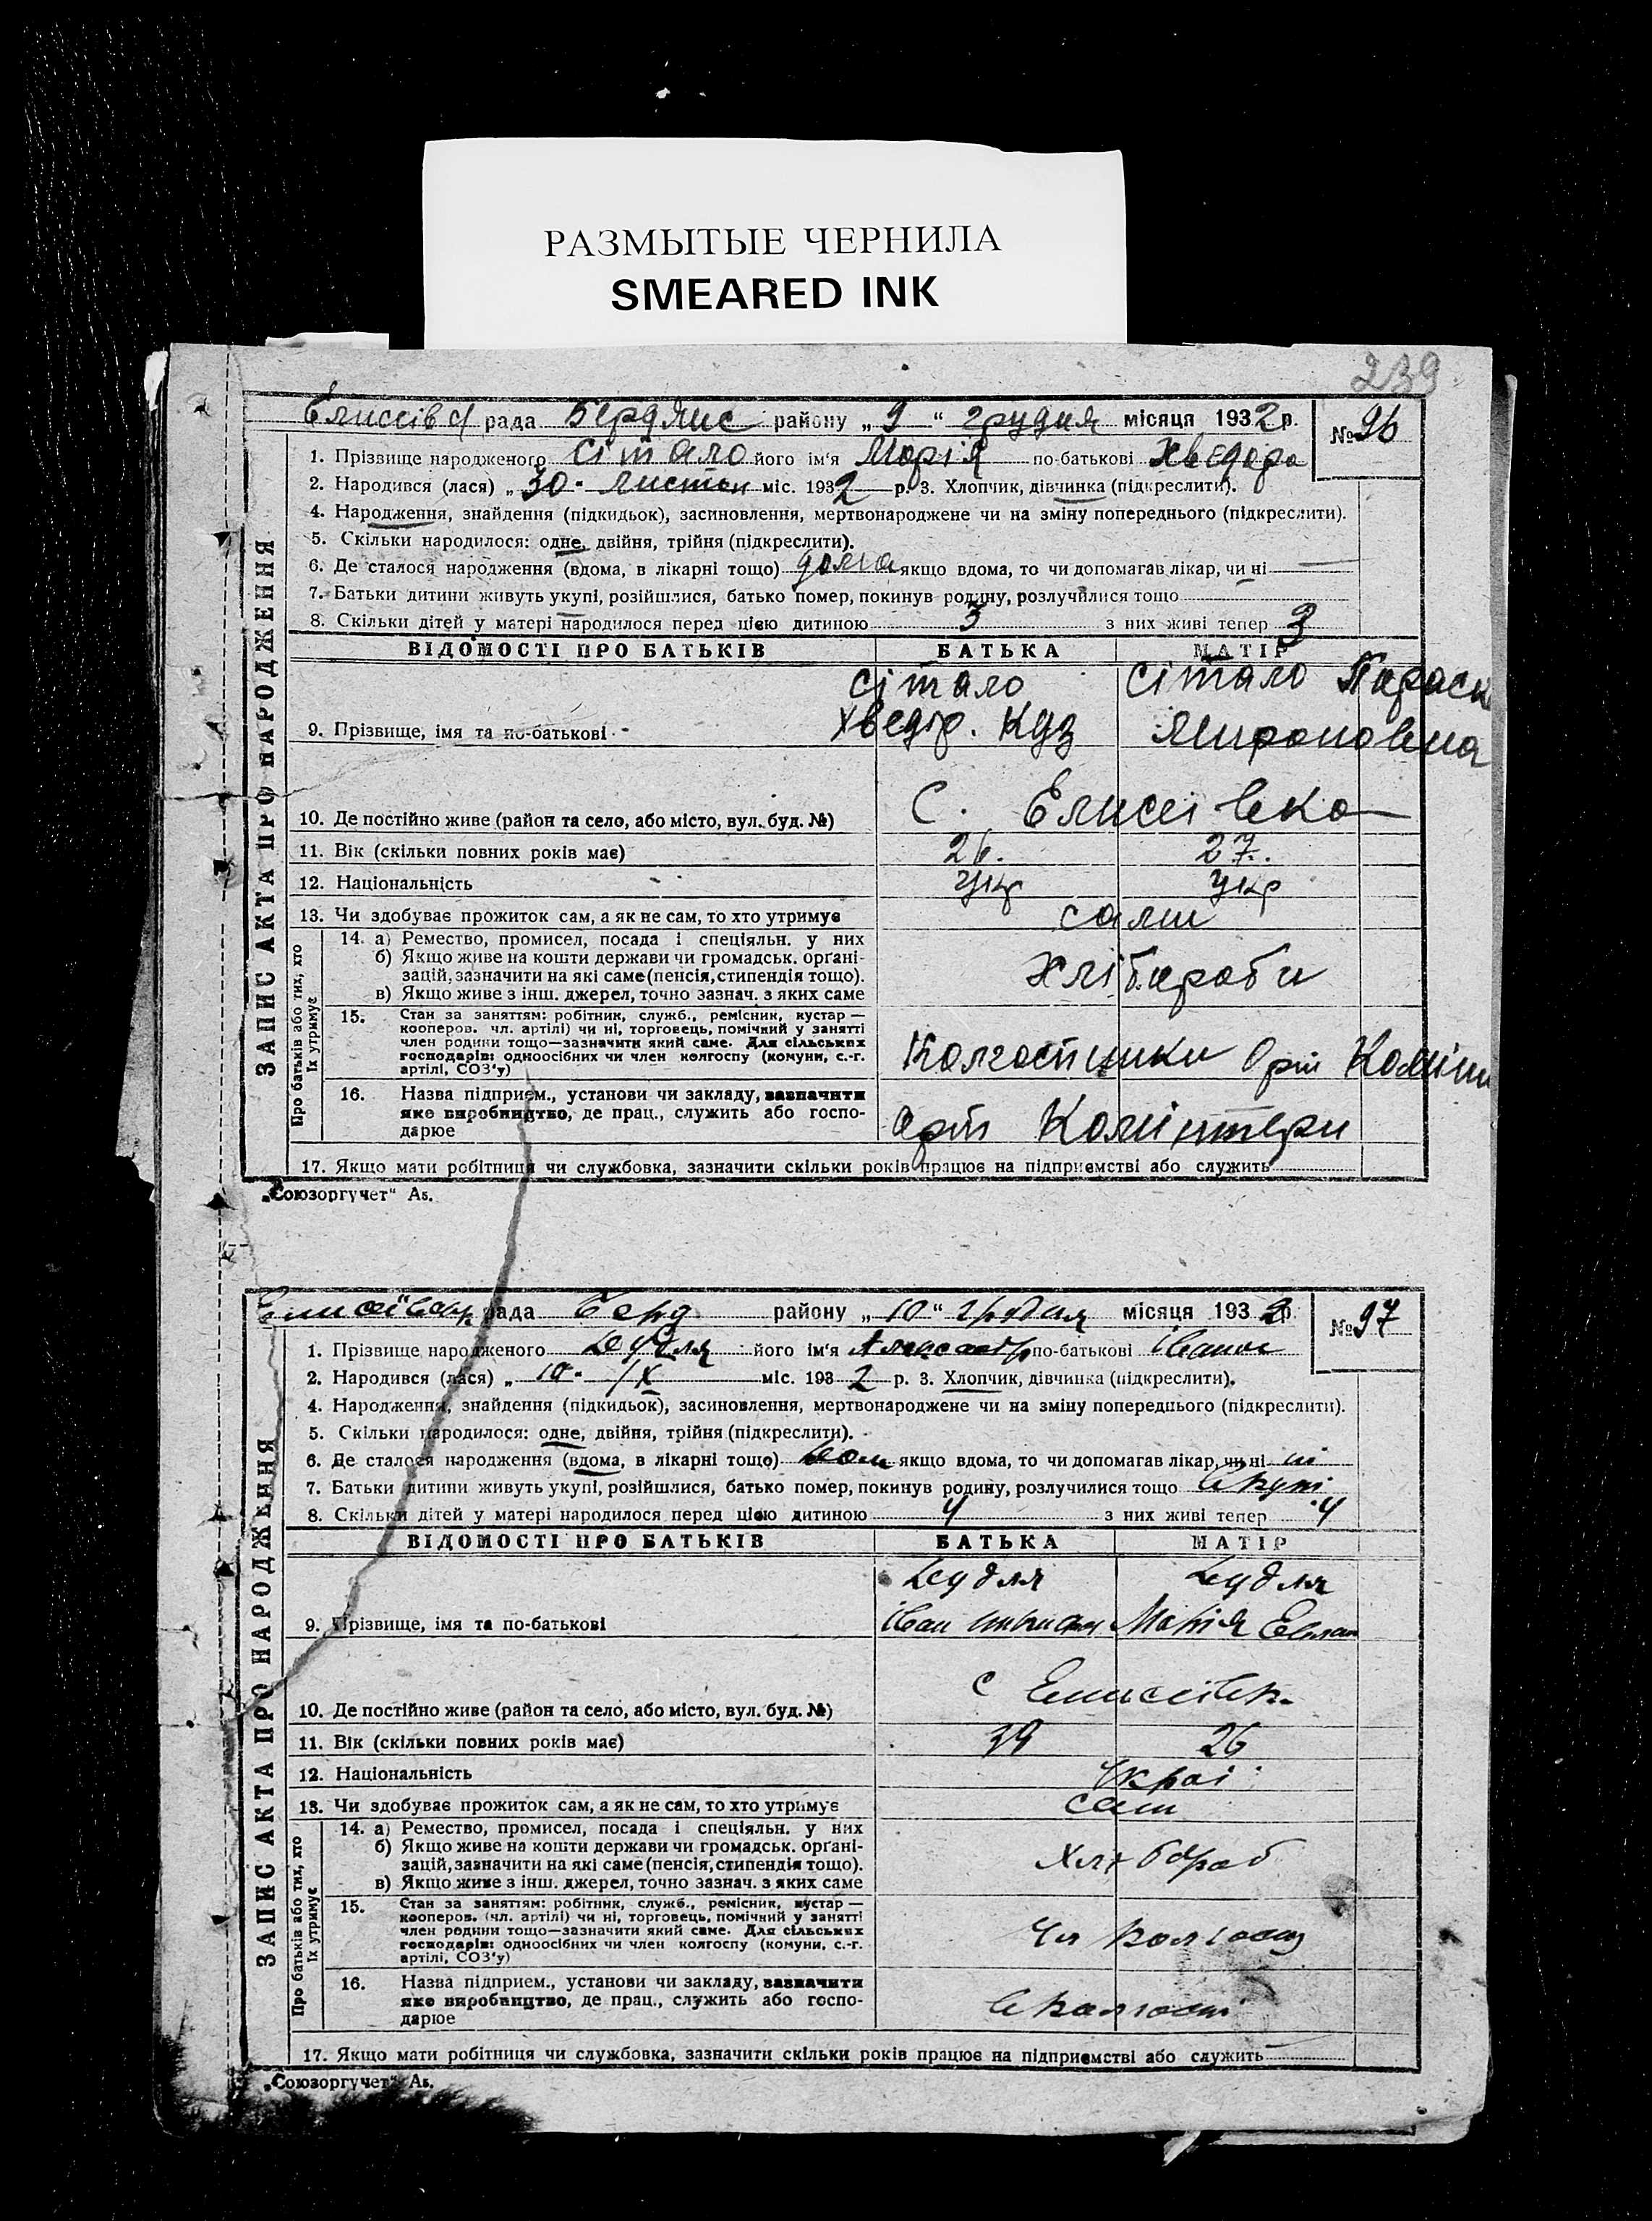 РАЗМЫТЫЕ ЧЕРНИЛА
SMEARED INK
239
рада Бердянс району „ 9 “ грудня місяця 1932 р. № 96
1. Прізвище народженого Сітало його ім'я Марія по-батькові Хведоро
2. Народився (лася) „ 30 - листоп міс. 1932 р. 3. Хлопчик, дівчинка (підкреслити).
4. Народження, знайдення (підкидьок), засиновлення, мертвонароджене чи на зміну попереднього (підкреслити).
5. Скільки народилося: одне, двійня, трійня (підкреслити).
6. Де сталося народження (вдома, в лікарні тощо) дома якщо вдома, то чи допомагав лікар, чи ні
7. Батьки дитини живуть укупі, розійшлися, батько помер, покинув родину, розлучилися тощо
8. Скільки дітей у матері народилося перед цією дитиною 3 з них живі тепер 3
ВІДОМОСТІ ПРО БАТЬКІВ БАТЬКА МАТІР
Сітало Сітало Параск
9. Прізвище, імя та по-батькові Хведір. Куз Мироновна
10. Де постійно живе (район та село, або місто, вул. буд. №) С. Елисеівка
11. Вік (скільки повних років має) 26. 27.
12. Національність Укр Укр
13. Чи здобуває прожиток сам, а як не сам, то хто утримує сами
14. а) Ремество, промисел, посада і спеціяльн. у них
б) Якщо живе на кошти держави чи громадськ. орґані-
зацій, зазначити на які саме (пенсія, стипендія тощо). Хлібароби
в) Якщо живе з інш. джерел, точно зазнач. з яких саме
15. Стан за заняттям: робітник, служб., ремісник, кустар —
кооперов. чл. артілі) чи ні, торговець, помічний у занятті
член родини тощо—зазначити який саме. Для сільських
господарів: одноосібних чи член колгоспу (комуни, с.-г. Колгоспники Орт Комінт
артілі, СОЗ'у)
16. Назва підприєм., установи чи закладу, зазначити
яке виробництво, де прац., служить або госпо- Орт Комінтерн
дарює
17. Якщо мати робітниця чи службовка, зазначити скільки років працює на підприємстві або служить
ЗАПИС АКТА ПРО НАРОДЖЕННЯ
Про батьків або тих, хто їх утримує
„Союзоргучет“ А5.
рада Берд району „ 10 “ грудня місяця 1932 р. № 97
1. Прізвище народженого його ім'я по-батькові Іванов
2. Народився (лася) „ 10 - IX міс. 1932 р. 3. Хлопчик, дівчинка (підкреслити).
4. Народження, знайдення (підкидьок), засиновлення, мертвонароджене чи на зміну попереднього (підкреслити).
5. Скільки народилося: одне, двійня, трійня (підкреслити).
6. Де сталося народження (вдома, в лікарні тощо) якщо вдома, то чи допомагав лікар, чи ні ні
7. Батьки дитини живуть укупі, розійшлися, батько помер, покинув родину, розлучилися тощо вкупі
8. Скільки дітей у матері народилося перед цією дитиною 4 з них живі тепер 4
ВІДОМОСТІ ПРО БАТЬКІВ БАТЬКА МАТІР
9. Прізвище, імя та по-батькові Іван Марія
10. Де постійно живе (район та село, або місто, вул. буд. №) с Елисеівк.
11. Вік (скільки повних років має) 39 26
12. Національність Украі
13. Чи здобуває прожиток сам, а як не сам, то хто утримує сами
14. а) Ремество, промисел, посада і спеціяльн. у них
б) Якщо живе на кошти держави чи громадськ. орґані-
зацій, зазначити на які саме (пенсія, стипендія тощо). Хлібороб
в) Якщо живе з інш. джерел, точно зазнач. з яких саме
15. Стан за заняттям: робітник, служб., ремісник, кустар —
кооперов. (чл. артілі) чи ні, торговець, помічний у занятті
член родини тощо—зазначити який саме. Для сільських
господарів: одноосібних чи член колгоспу (комуни, с.-г. Чл колгоспу
артілі, СОЗ'у)
16. Назва підприєм., установи чи закладу, зазначити
яке виробництво, де прац., служить або госпо- в колгоспі
дарює
17. Якщо мати робітниця чи службовка, зазначити скільки років працює на підприємстві або служить
ЗАПИС АКТА ПРО НАРОДЖЕННЯ
Про батьків або тих, хто їх утримує
„Союзоргучет“ А5.